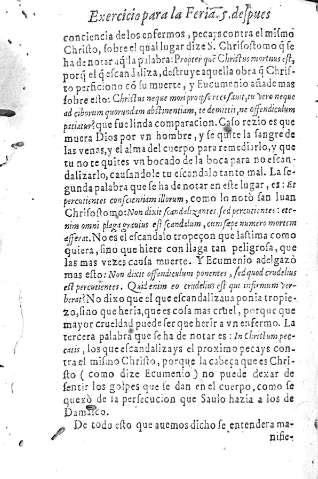 Exercicio para la Feria. 5. despues
conciencia de los enfermos, pecays contra el mismo
Christo, sobre el qual lugar dize S. Chrisostomo q̃ se
ha de notar aq̃lla palabra: Propter quẽ Christus mortuus est,
porq̃ el q̃ escandaliza, destruye aquella obra q̃ Chris-
to perficiono cõ su muerte, y Eucumenio añade mas
sobre esto: Christus neque mori pro ipsis recusauit, tu vero neque
ad ciborum quorundam abstinentiam, te demittis, ne offendiculum
patiatur? que fue linda comparacion. Caso rezio es que
muera Dios por vn hombre, y se quite la sangre de
las venas, y el alma del cuerpo para remediarlo, y que
tu no te quites vn bocado de la boca para no escan-
dalizarlo, causandole tu escandalo tanto mal. La se-
gunda palabra que se ha de notar en este lugar, es: Et
percutientes conscientiam illorum, como lo notò san Iuan
Chrisostomo: Non dixit scandalizantes, sed percutientes: ete-
nim omni plaga grauius est scandalum, cum sæpe numero mortem
afferat. No es el escandalo tropeçon que lastima como
quiera, sino que hiere con llaga tan peligrosa, que
las mas vezes causa muerte. Y Ecumenio adelgazò
mas esto: Non dixit offendiculum ponentes, sed quod crudelius
est percutientes. Quid enim eo crudelius est qui infirmum ver-
berat? No dixo que el que escandalizaua ponia trope-
zo, sino que heria, que es cosa mas cruel, porque que
mayor crueldad puede ser que herir a vn enfermo. La
tercera palabra que se ha de notar es: In Christum pec-
catis, los que escandalizays el proximo pecays con-
tra el mismo Christo, porque la cabeça que es Chri-
sto (como dize Ecumenio) no puede dexar de
sentir los golpes que se dan en el cuerpo, como se
quexò de la persecucion que Saulo hazia a los de
Damasco.
De todo esto que auemos dicho se entendera ma-
nifie-